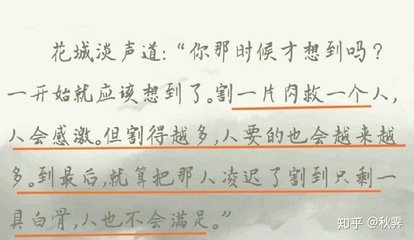 花城淡声道:“你那时候才想到吗?
一开始就应该想到了。割一片肉救一个人,
人会感激。但割得越多,人要的也会越来越
多。到最后,就算把那人凌迟了割到只剩一
具白骨,人也不会满足。”
知乎 @秋霁